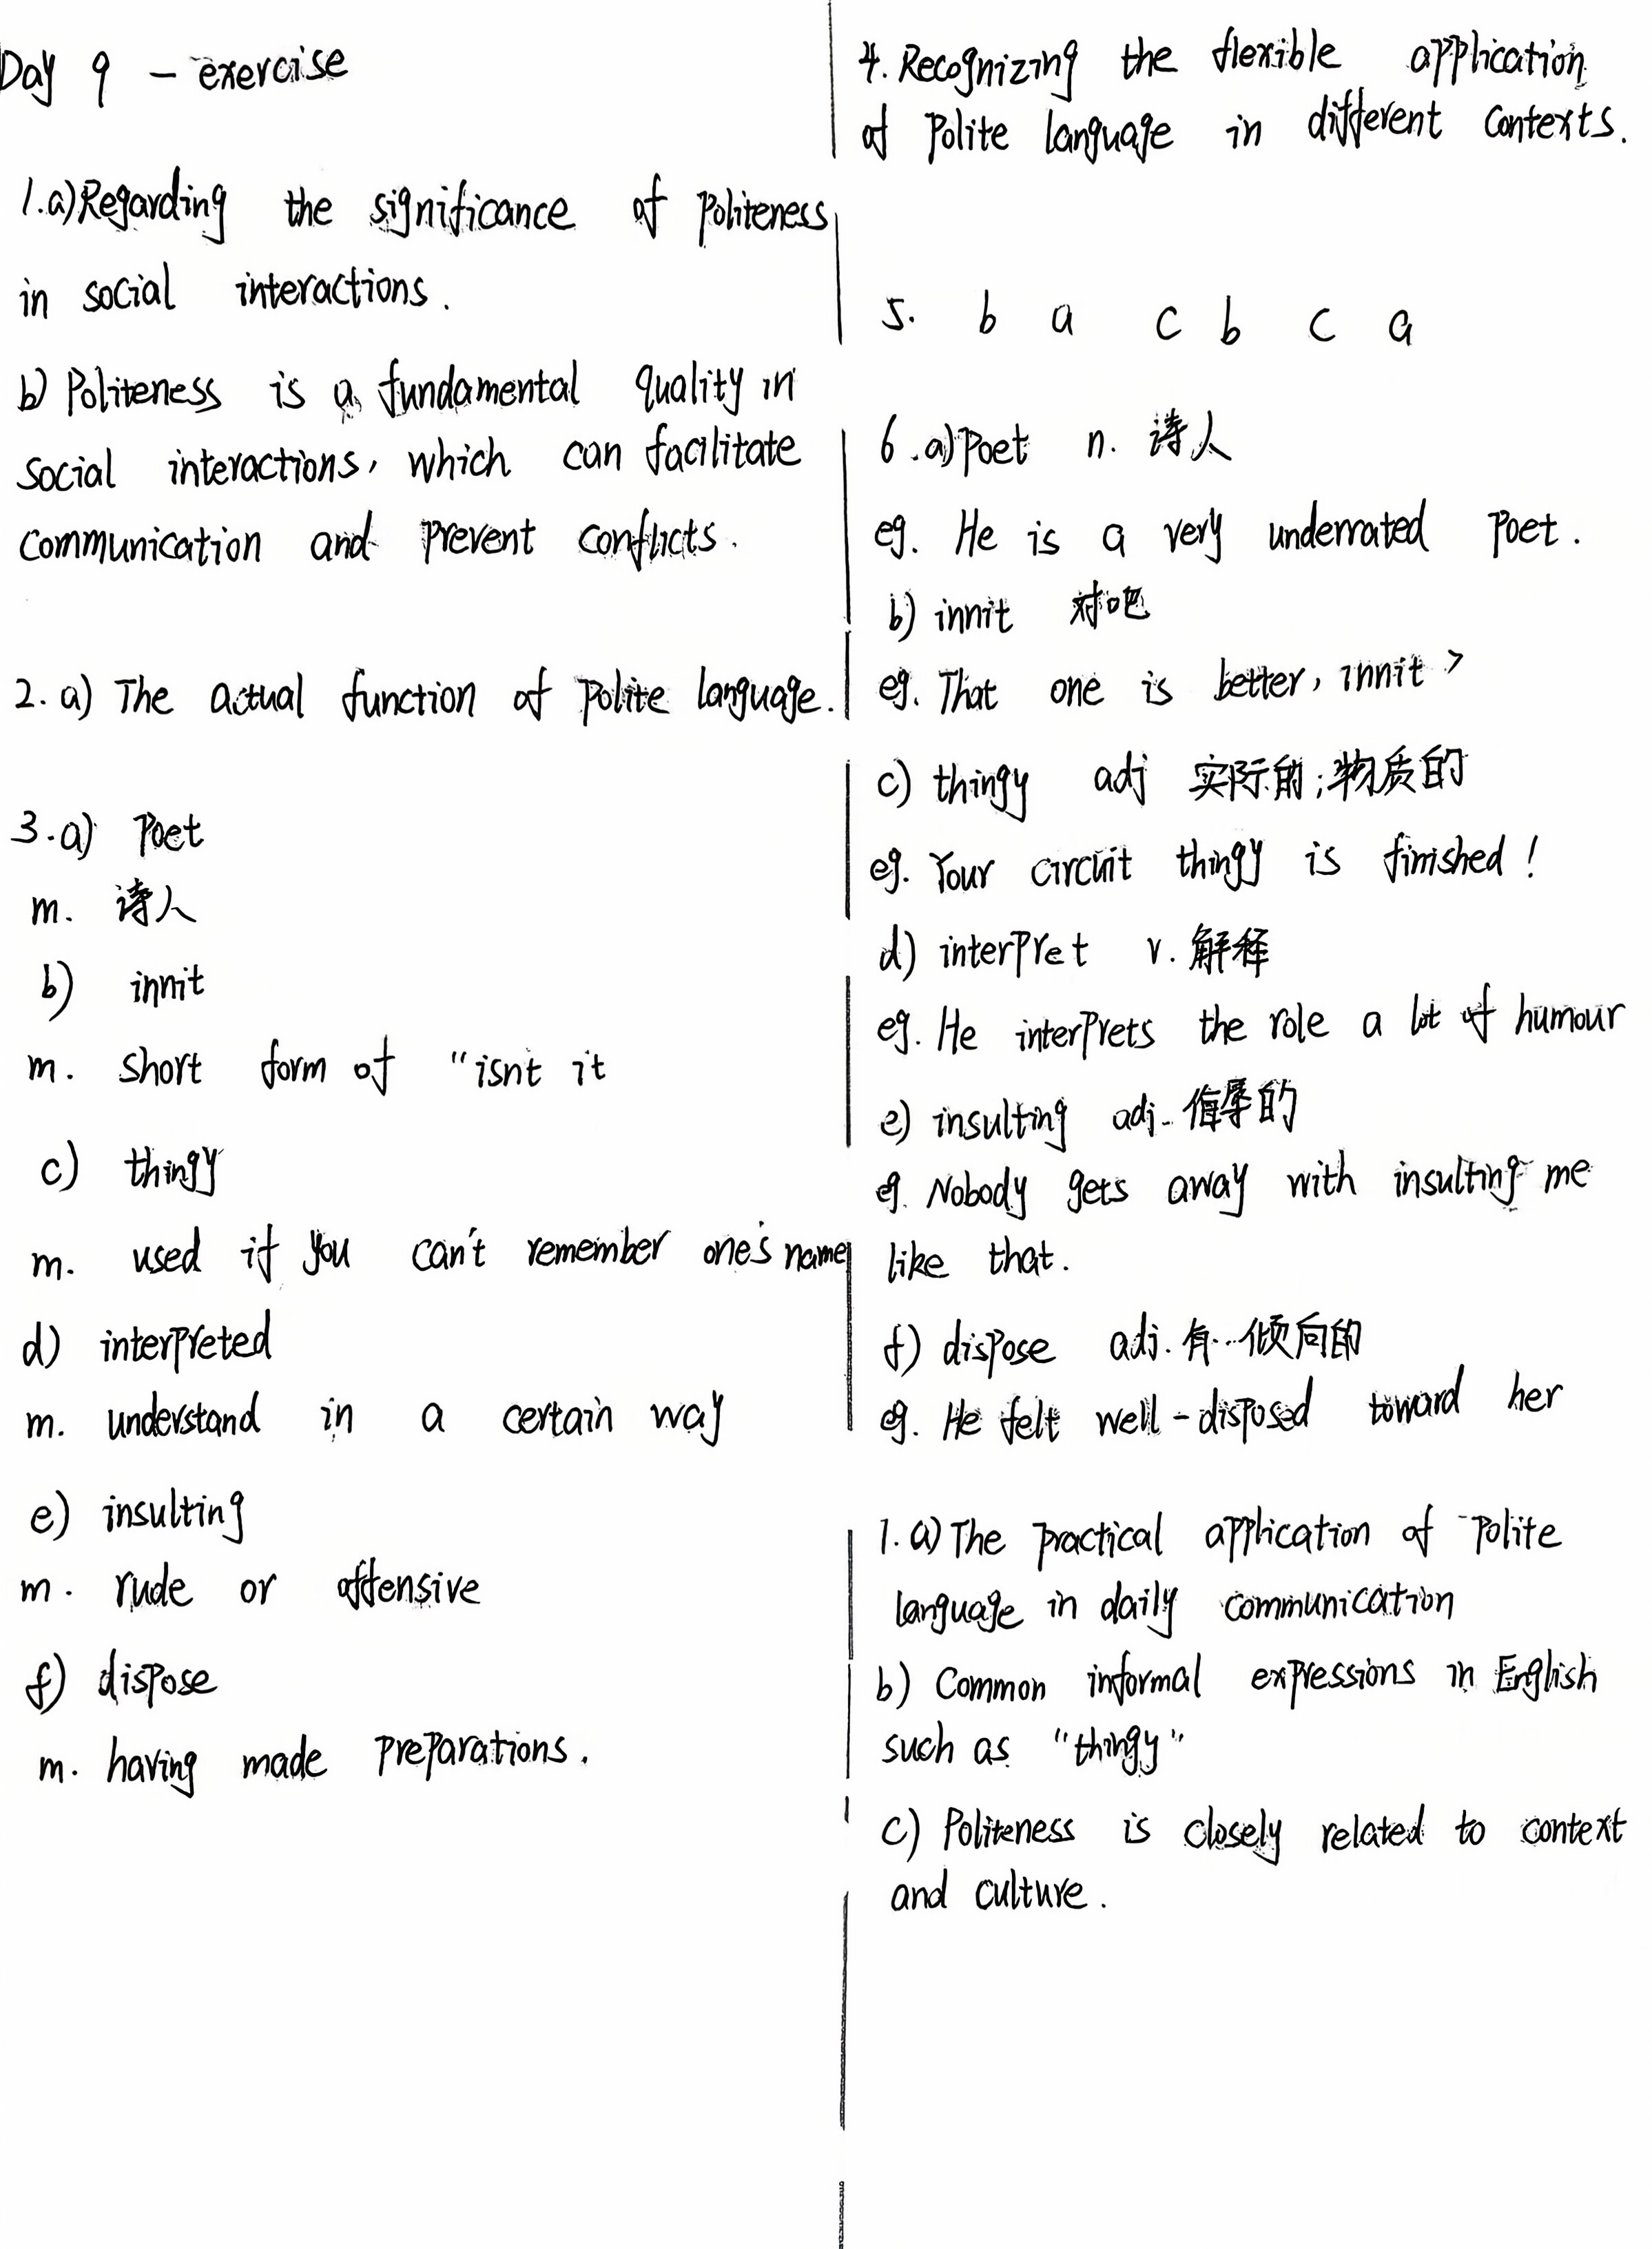 Day 9 - exercise
1.a) Regarding the significance of politeness
in social interactions.
b) Politeness is a fundamental quality in
social interactions, which can facilitate
communication and prevent conflicts.
2. a) The actual function of polite language.
3.a) poet
m. 诗人
b) innit
m. short form of "isnt it
c) thingy
m. used if you can't remember one's name
d) interpreted
m. understand in a certain way
e) insulting
m. rude or offensive
f) dispose
m. having made preparations.
4. Recognizing the flexible application
of polite language in different contexts.
5. b a c b c a
6.a) poet n. 诗人
eg. He is a very underrated poet.
b) innit 对吧
eg. That one is better, innit ?
c) thingy adj 实际的;物质的
eg. Your circuit thingy is finished!
d) interpret v. 解释
eg. He interprets the role a lot of humour
e) insulting adj. 侮辱的
eg. Nobody gets away with insulting me
like that.
f) dispose adj. 有…倾向的
eg. He felt well-disposed toward her
1. a) The practical application of polite
language in daily communication
b) Common informal expressions in English
such as "thingy"
c) Politeness is closely related to context
and culture.